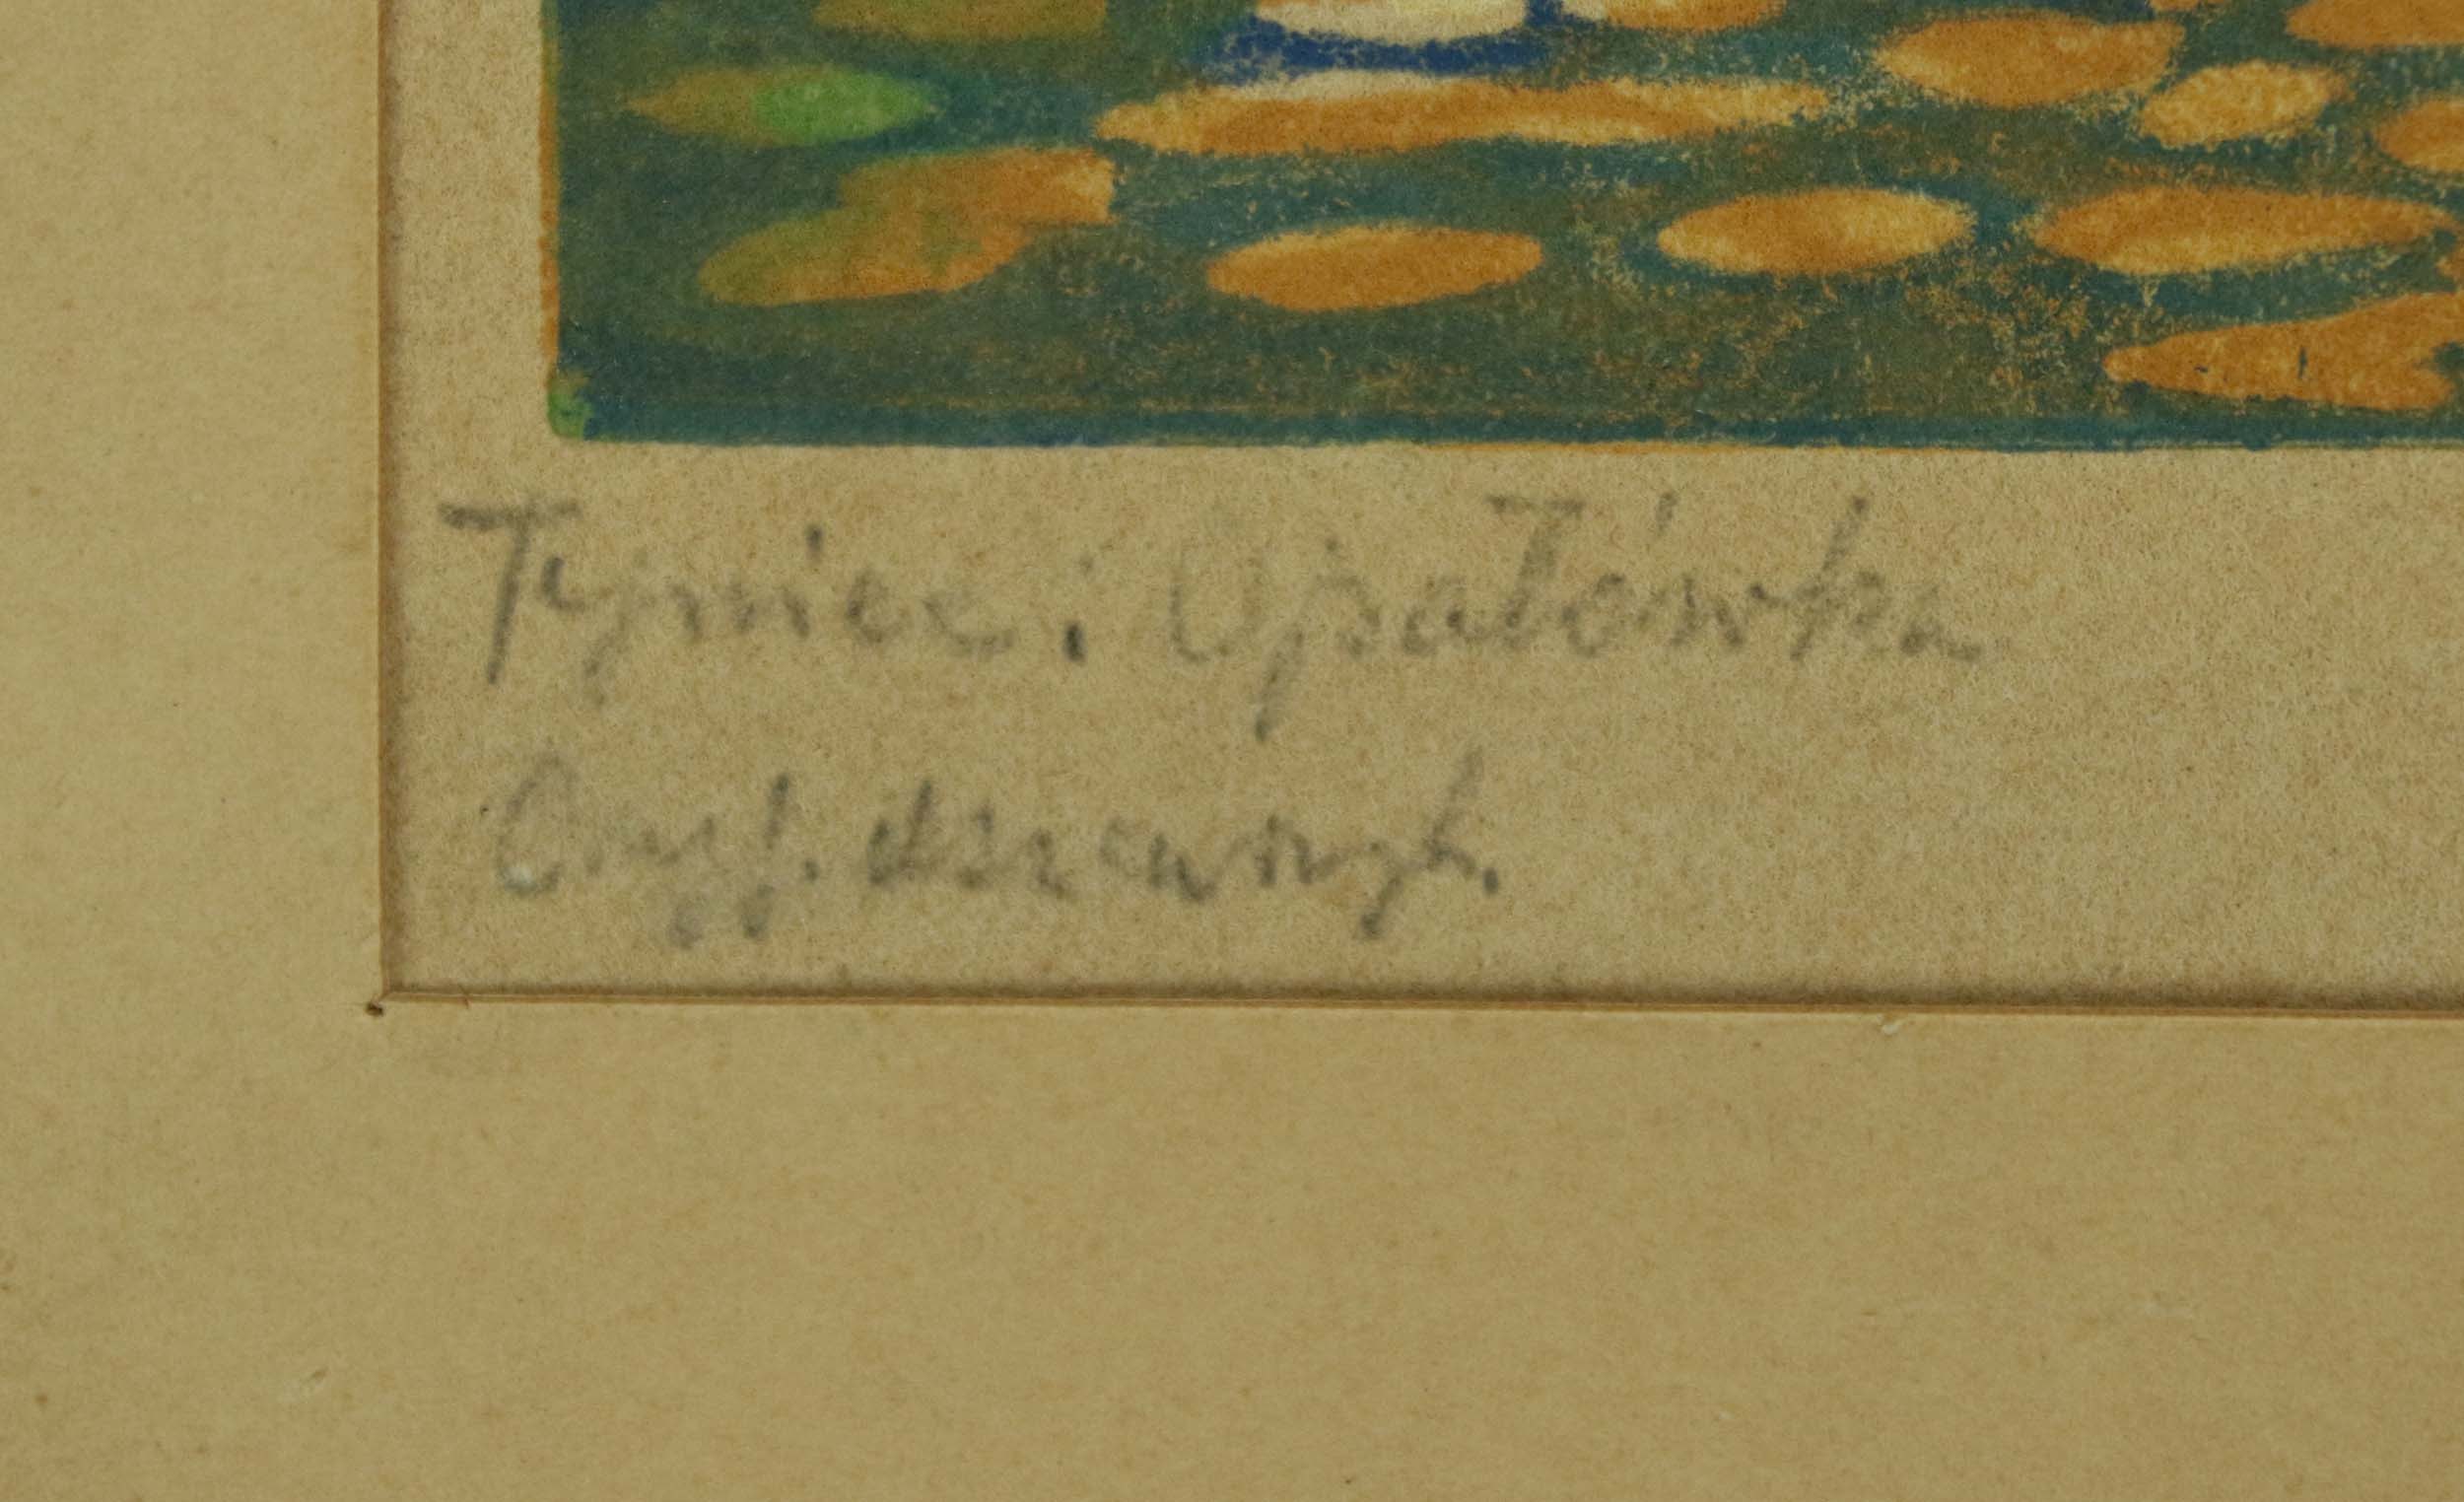 Tyniec i Opatówka
Oryg. drzeworyt.